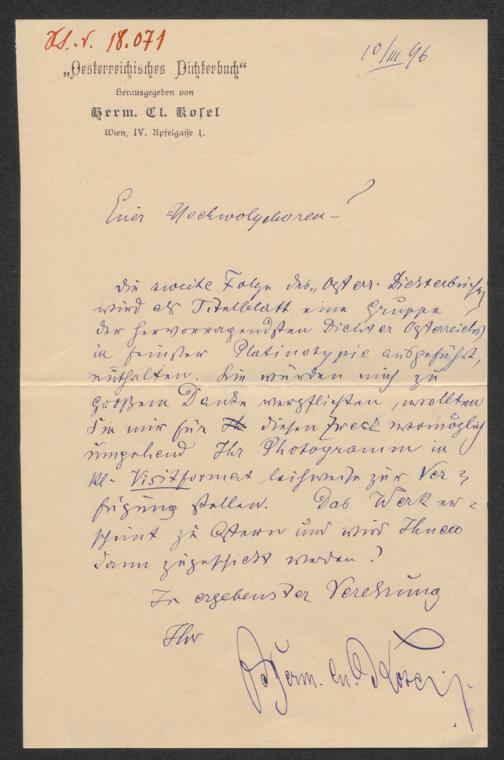 H.I.N. 18.071
10/III 96
„Oesterreichisches Dichterbuch“
Herausgegeben von
Herm. Cl. Kosel
Wien, IV. Apfelgasse 1.
Euer Hochwolgeboren!
Die zweite Folge des „Österr. Dichterbuches“
wird als Titelblatt eine Gruppe
der hervorragendsten Dichter Österreichs
in feinster Platinotypie ausgeführt,
enthalten. Sie würden mich zu
großem Danke verpflichten, wollten
Sie mir für diesen Zweck womöglich
umgehend Ihr Photogramm in
kl. Visitformat leihweise zur Ver=
fügung stellen. Das Werk er=
scheint zu Ostern und wird Ihnen
dann zugeschickt werden!
In ergebenster Verehrung
Ihr
Herm. Cl. Kosel